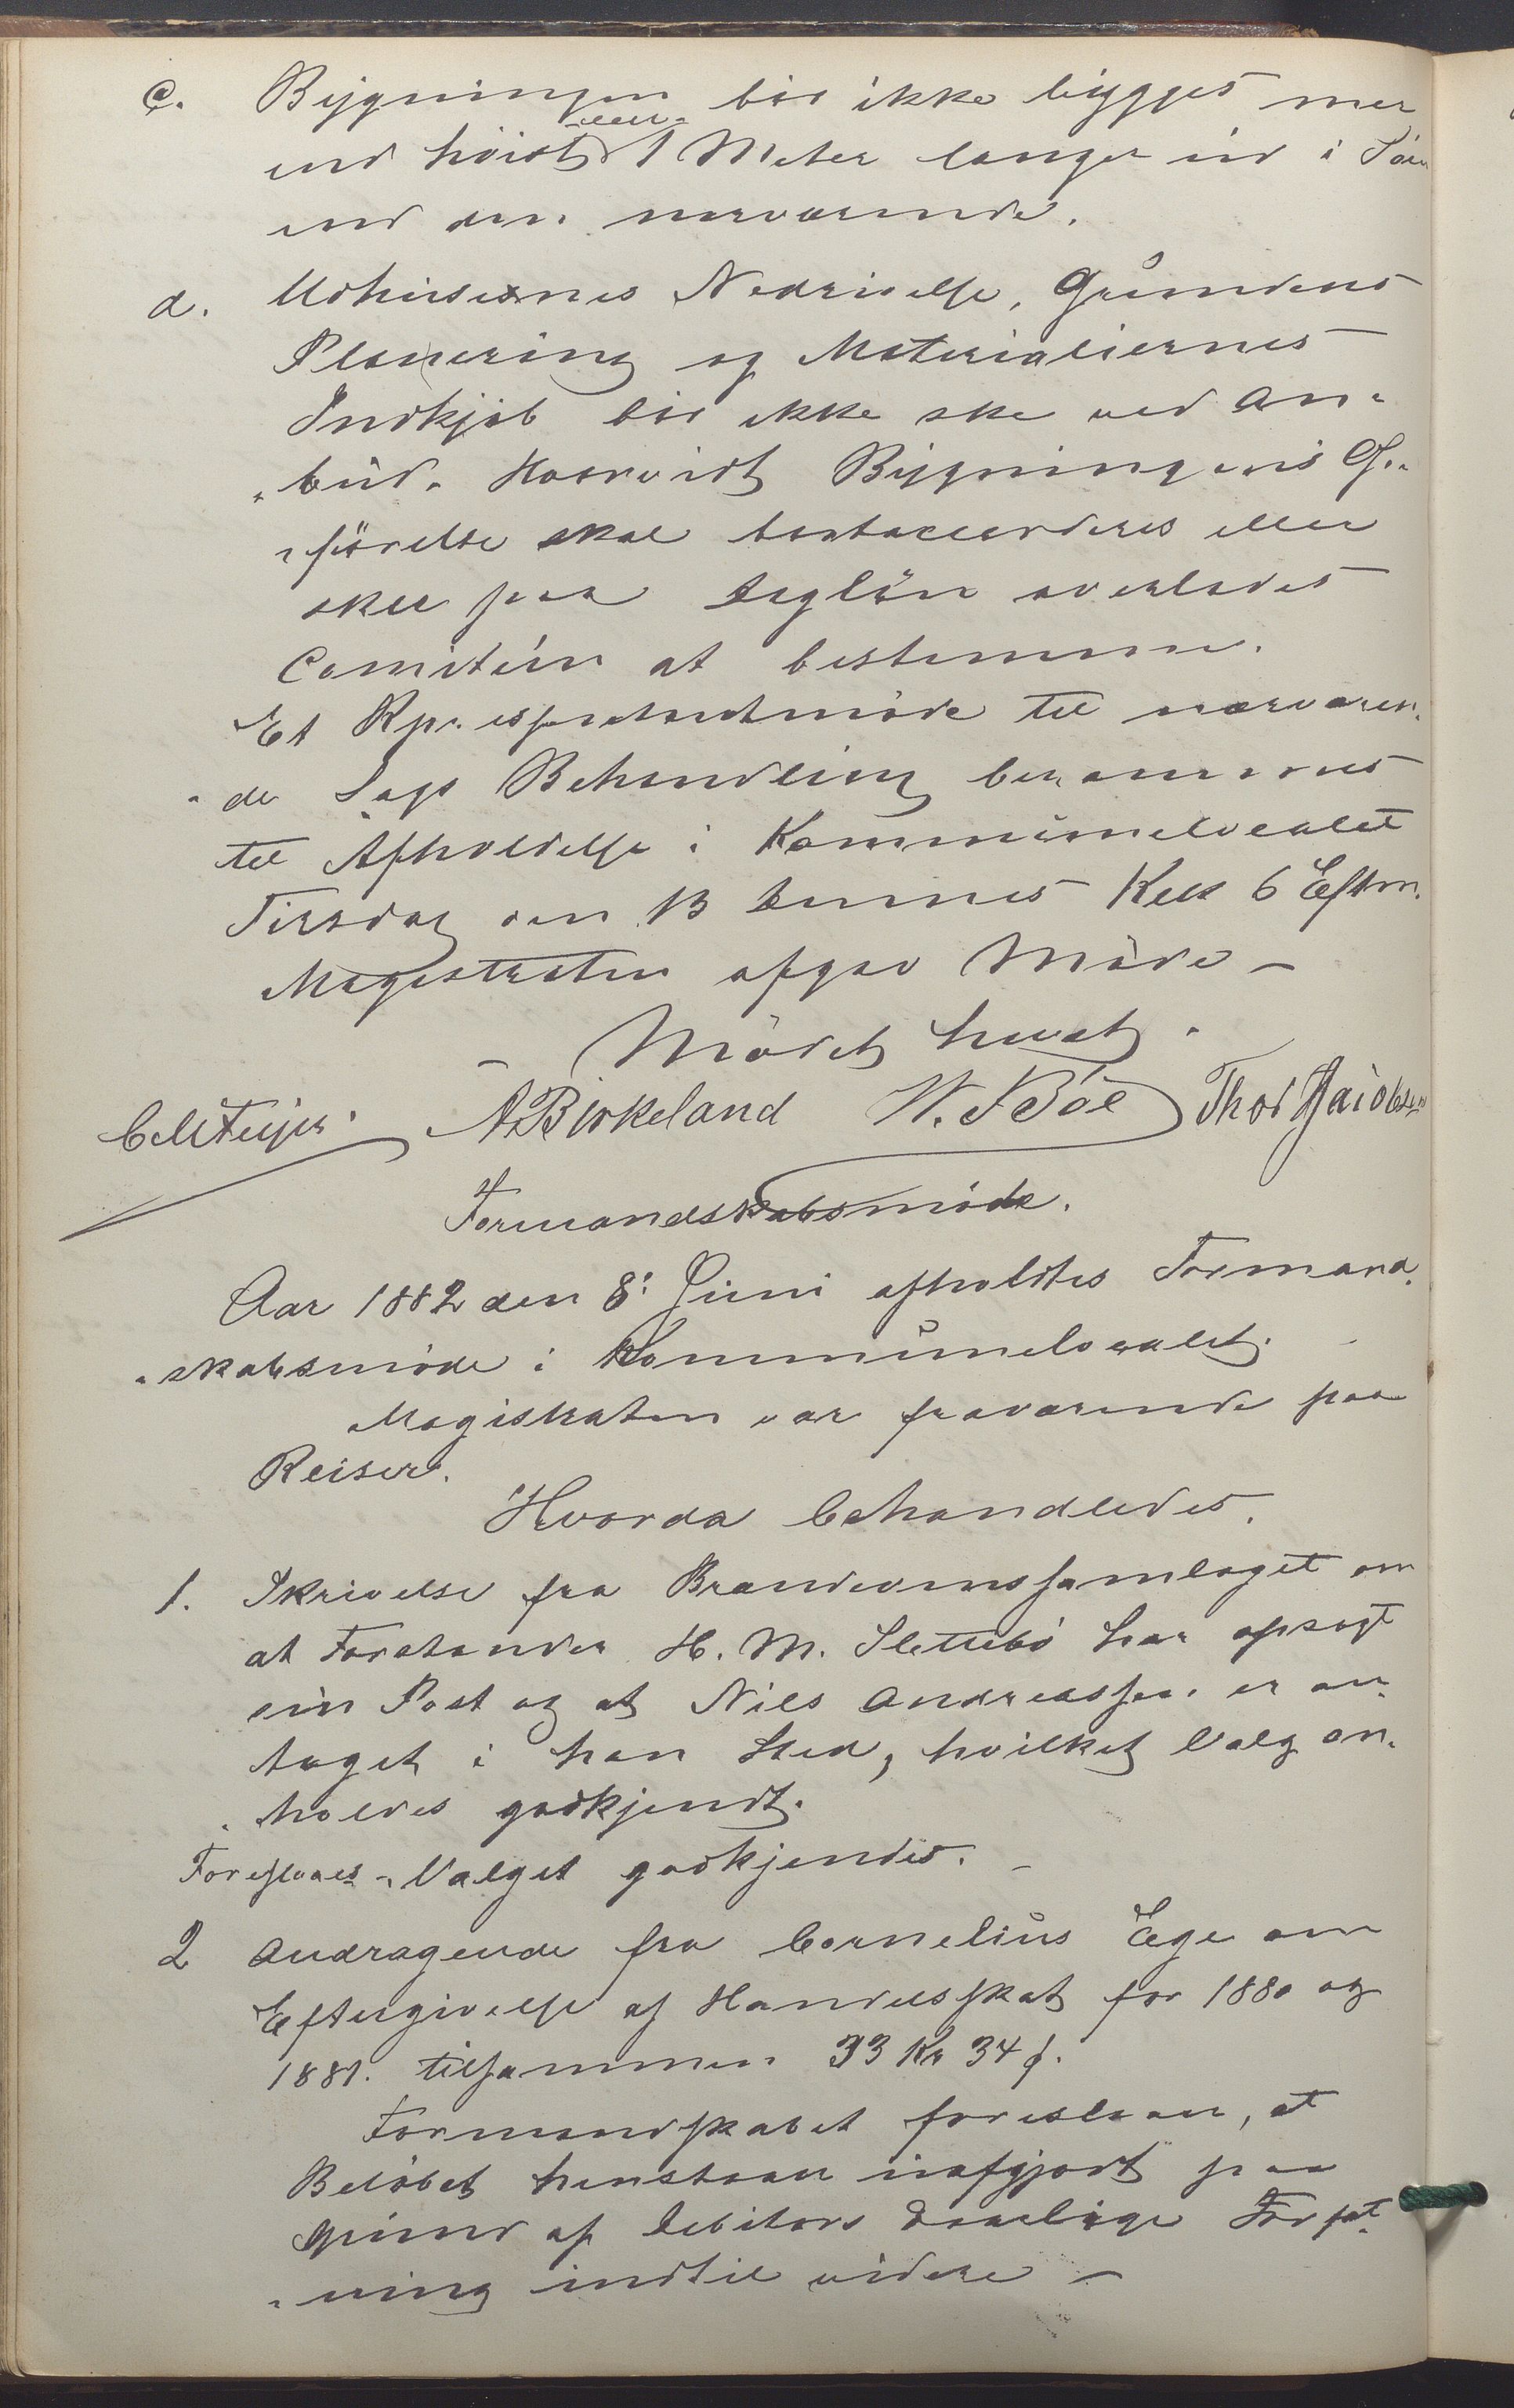 c. Bygningen bör ikke bygges mer
end höist 1 Meter længer ud i Söen
end den nærværende.
d. Udhusernes Nedrivelse, Grundens
Planering og Materialiernes
Indkjöb bör ikke ske ved An-
"bud. Hvorvidt Bygningens Op-
"förelse skal bortaccorderes eller
skee paa Daglön overlades
Comitéen at bestemme.
Et Repræsentantmöde til nærværen-
"de Sags Behandling berammedes
til Afholdelse i Kommunelocalet
Tirsdag den 13 dennes Kell 6 Efterm.
Magistraten afgav Möde –
– Mödet hevet.
A Birkeland W. Böe Thor Jacobsen
Formandskabsmöde.
Aar 1882 den 8: Juni afholdtes Formand-
"skabsmöde i Kommunelocalet.
Magistraten var fraværende paa
Reiser.
Hvorda behandledes.
1. Skrivelse fra Brændevinssamlaget om
at Forstander H. M. Slettebö har opsagt
sin Post og at Nils Andreassen er an-
taget i han Sted, hvilket Valg an-
"holdes godkjendt.
Foreslaaes "Valget godkjendes. –
2 Andragende fra Cornelius Ege om
Eftergivelse af Handelsskat for 1880 og
1881. tilsammen 33 Kr 34 ø.
Formandskabet foreslaar, at
Belöbet henstaar uafgjort paa
Grund af Debitors daarlige Forfat-
"ning indtil videre –